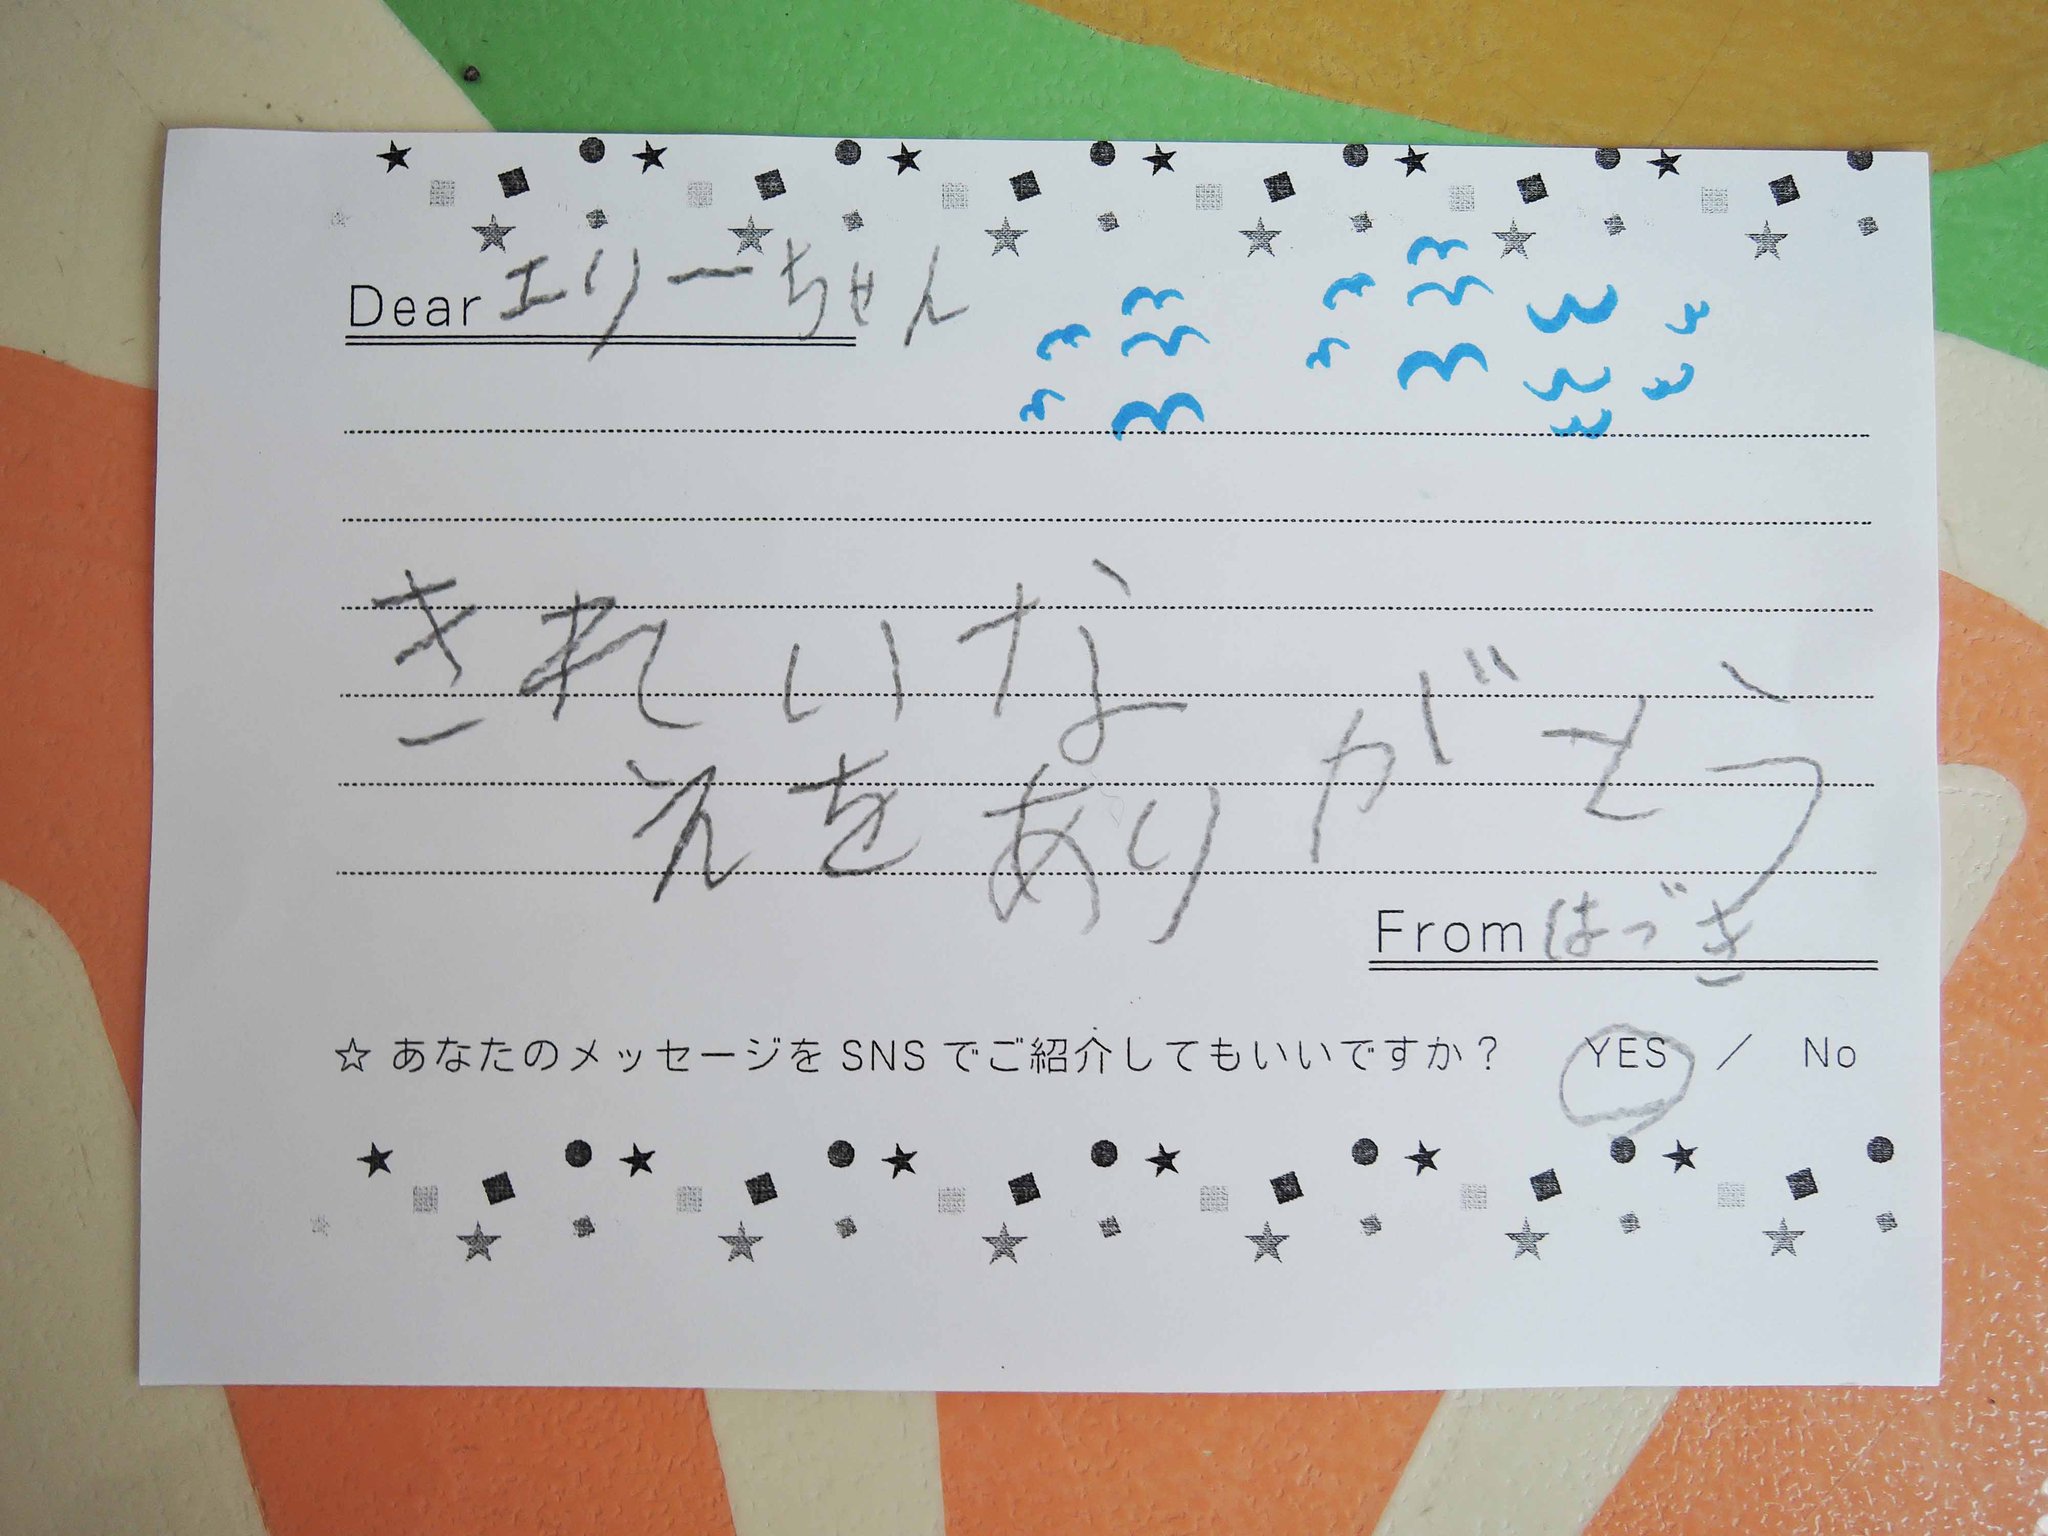 Dear エリーちゃん
きれいな
えをありがとう
From はづき
☆あなたのメッセージをSNSでご紹介してもいいですか？ YES ／ No